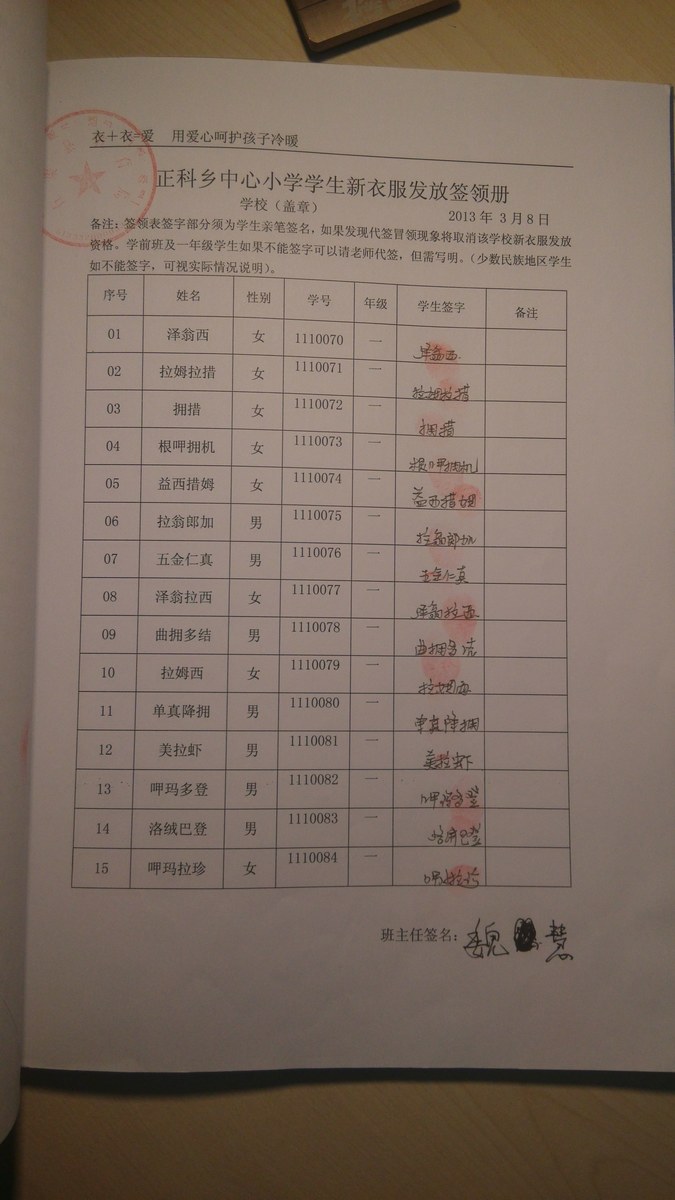 衣+衣=爱 用爱心呵护孩子冷暖
正科乡中心小学学生新衣服发放签领册
学校（盖章） 2013 年 3 月 8 日
备注：签领表签字部分须为学生亲笔签名，如果发现代签冒领现象将取消该学校新衣服发放
资格。学前班及一年级学生如果不能签字可以请老师代签，但需写明。（少数民族地区学生
如不能签字，可视实际情况说明）。
序号 姓名 性别 学号 年级 学生签字 备注
01 泽翁西 女 1110070 一 泽翁西
02 拉姆拉措 女 1110071 一 拉姆拉措
03 拥措 女 1110072 一 拥措
04 根呷拥机 女 1110073 一 根呷拥机
05 益西措姆 女 1110074 一 益西措姆
06 拉翁郎加 男 1110075 一 拉翁郎加
07 五金仁真 男 1110076 一 五金仁真
08 泽翁拉西 女 1110077 一 泽翁拉西
09 曲拥多结 男 1110078 一 曲拥多结
10 拉姆西 女 1110079 一 拉姆西
11 单真降拥 男 1110080 一 单真降拥
12 美拉虾 男 1110081 一 美拉虾
13 呷玛多登 男 1110082 一 呷玛多登
14 洛绒巴登 男 1110083 一 洛绒巴登
15 呷玛拉珍 女 1110084 一 呷玛拉珍
班主任签名：魏 慧